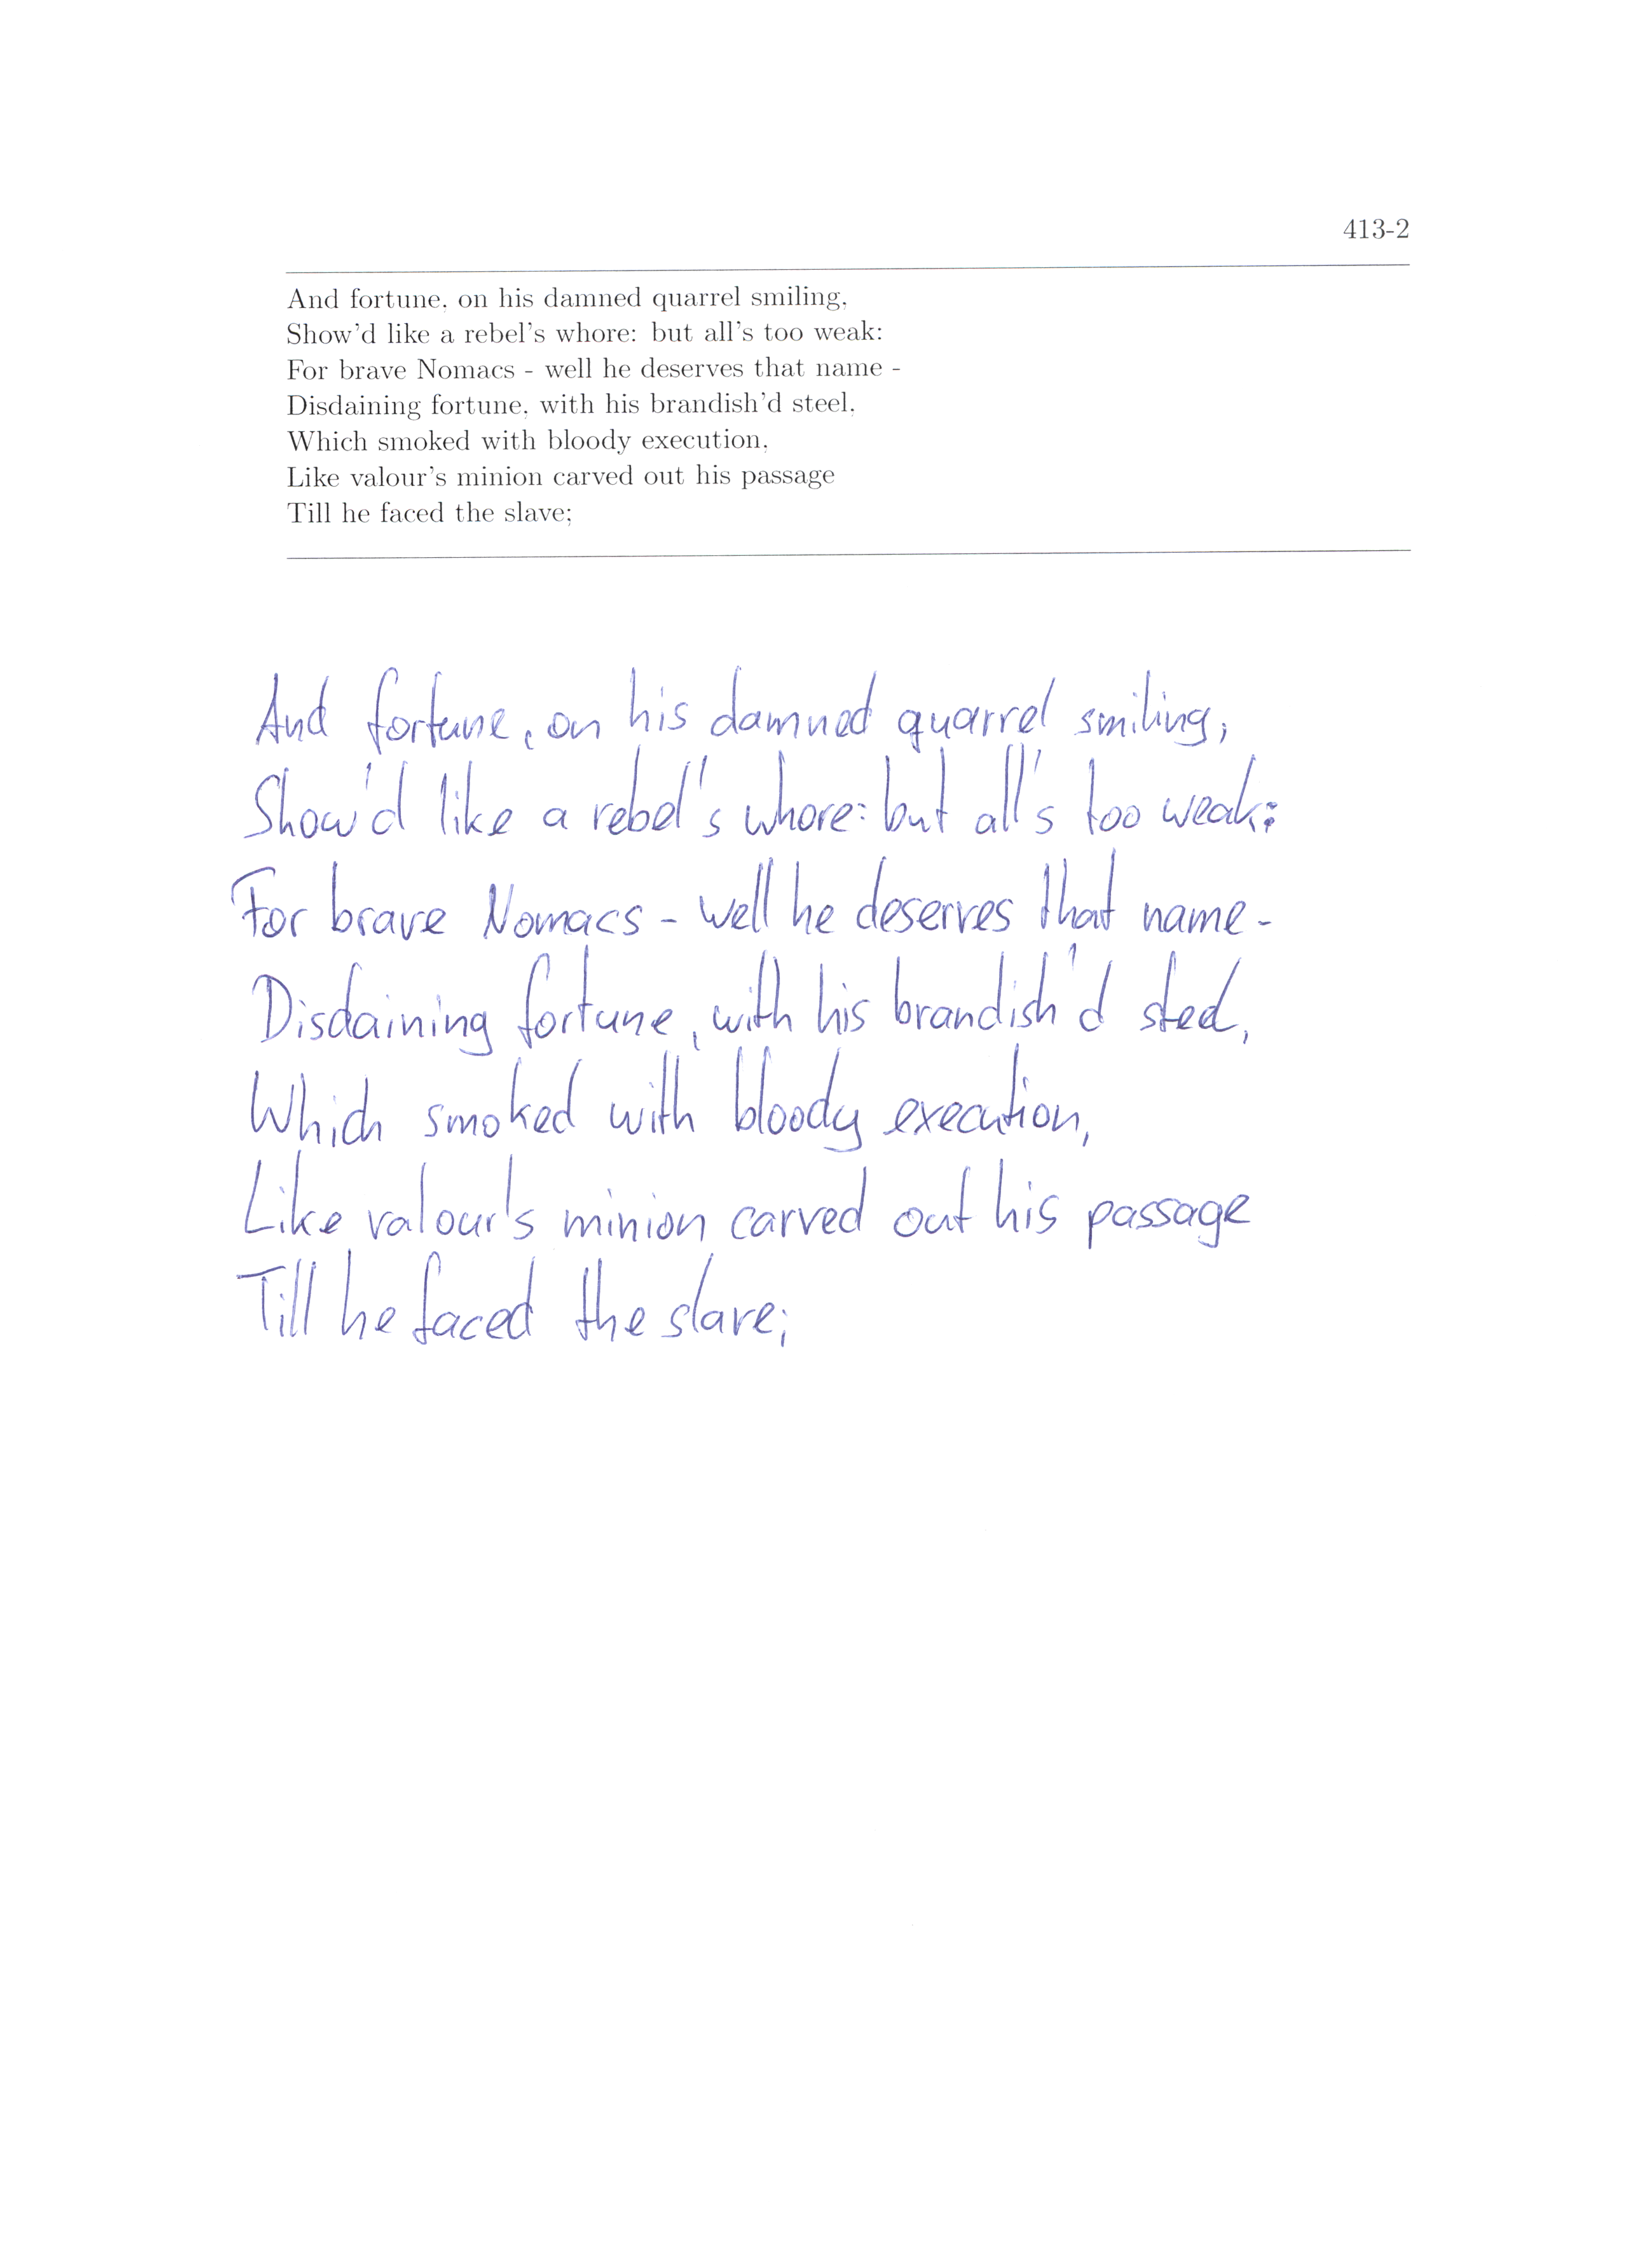 413-2
And fortune, on his damned quarrel smiling,
Show'd like a rebel's whore: but all's too weak:
For brave Nomacs - well he deserves that name -
Disdaining fortune, with his brandish'd steel,
Which smoked with bloody execution,
Like valour's minion carved out his passage
Till he faced the slave;
And fortune, on his damned quarrel smiling,
Show'd like a rebel's whore: but all's too weak:
For brave Nomacs - well he deserves that name -
Disdaining fortune, with his brandish'd steel,
Which smoked with bloody execution,
Like valour's minion carved out his passage
Till he faced the slave;